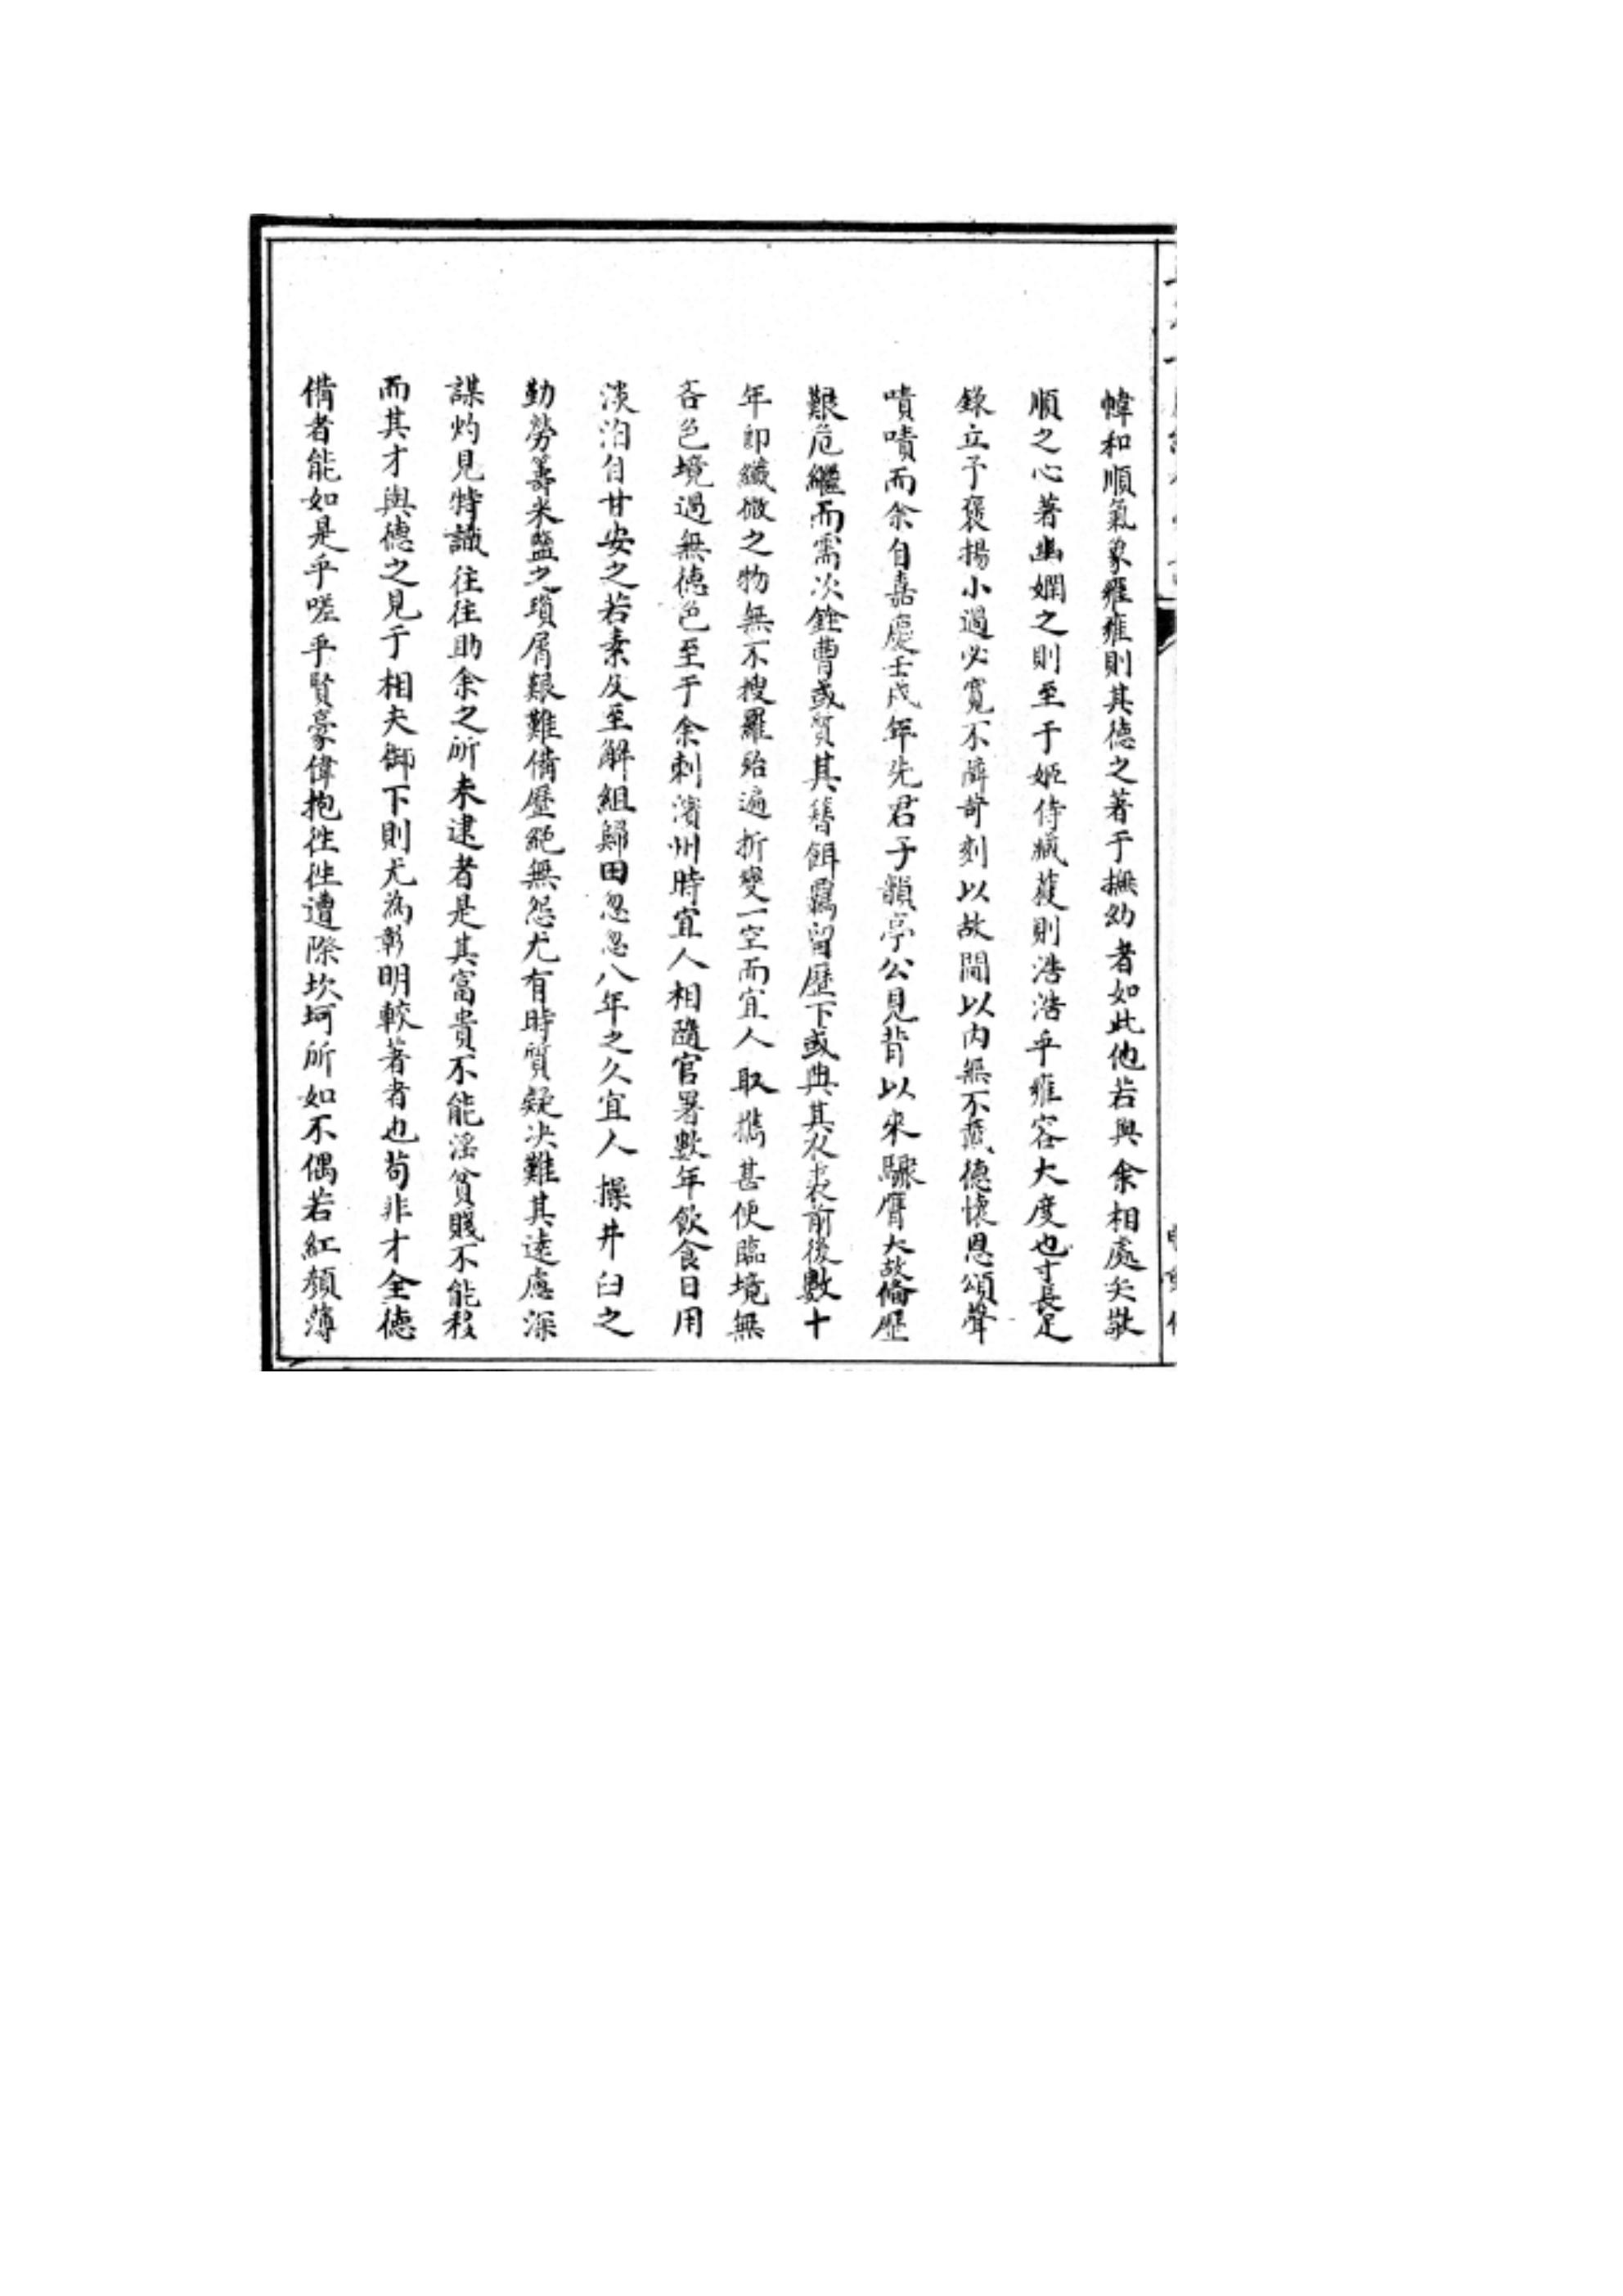 幃和順氣象雍雍則其德之著于撫幼者如此他若與余相處矢敬
順之心著幽嫻之則至于姬侍臧獲則浩浩乎雍容大度也寸長足
錄立予褒揚小過必寬不辭苛刻以故閫以內無不薰德懷恩頌聲
嘖嘖而余自嘉慶壬戌年先君子韻亭公見背以來驟膺大故俻歷
艱危繼而需次銓曹或質其簪餌羈留歷下或典其衣裘前後數十
年即纖微之物無不搜羅殆遍折變一空而宜人取攜甚便臨境無
吝色境過無德色至于余刺濱州時宜人相隨官署數年飲食日用
淡泊自甘安之若素及至解組歸田忽忽八年之久宜人操井臼之
勤勞籌米鹽之瑣屑艱難備歷絕無怨尤有時質疑决難其遠慮深
謀灼見特識往往助余之所未逮者是其富貴不能滛貧賤不能移
而其才與德之見于相夫御下則尤為彰明較著者也苟非才全德
備者能如是乎嗟乎賢豪偉抱徃徃遭際坎坷所如不偶若紅顏薄